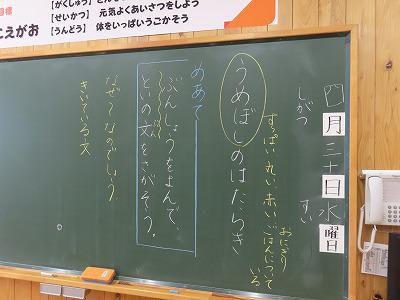 【がくしゅう】
【せいかつ】 元気よくあいさつをしよう
【うんどう】 体をいっぱいうごかそう
えがお
四月三十日水曜日
しがつ
すい
うめぼしのはたらき
すっぱい 丸い 赤い ごはんについている
おにぎり
めあて
ぶんしょうをよんで、
といの文をさがそう。
なぜ〜なのでしょう。
きいている文